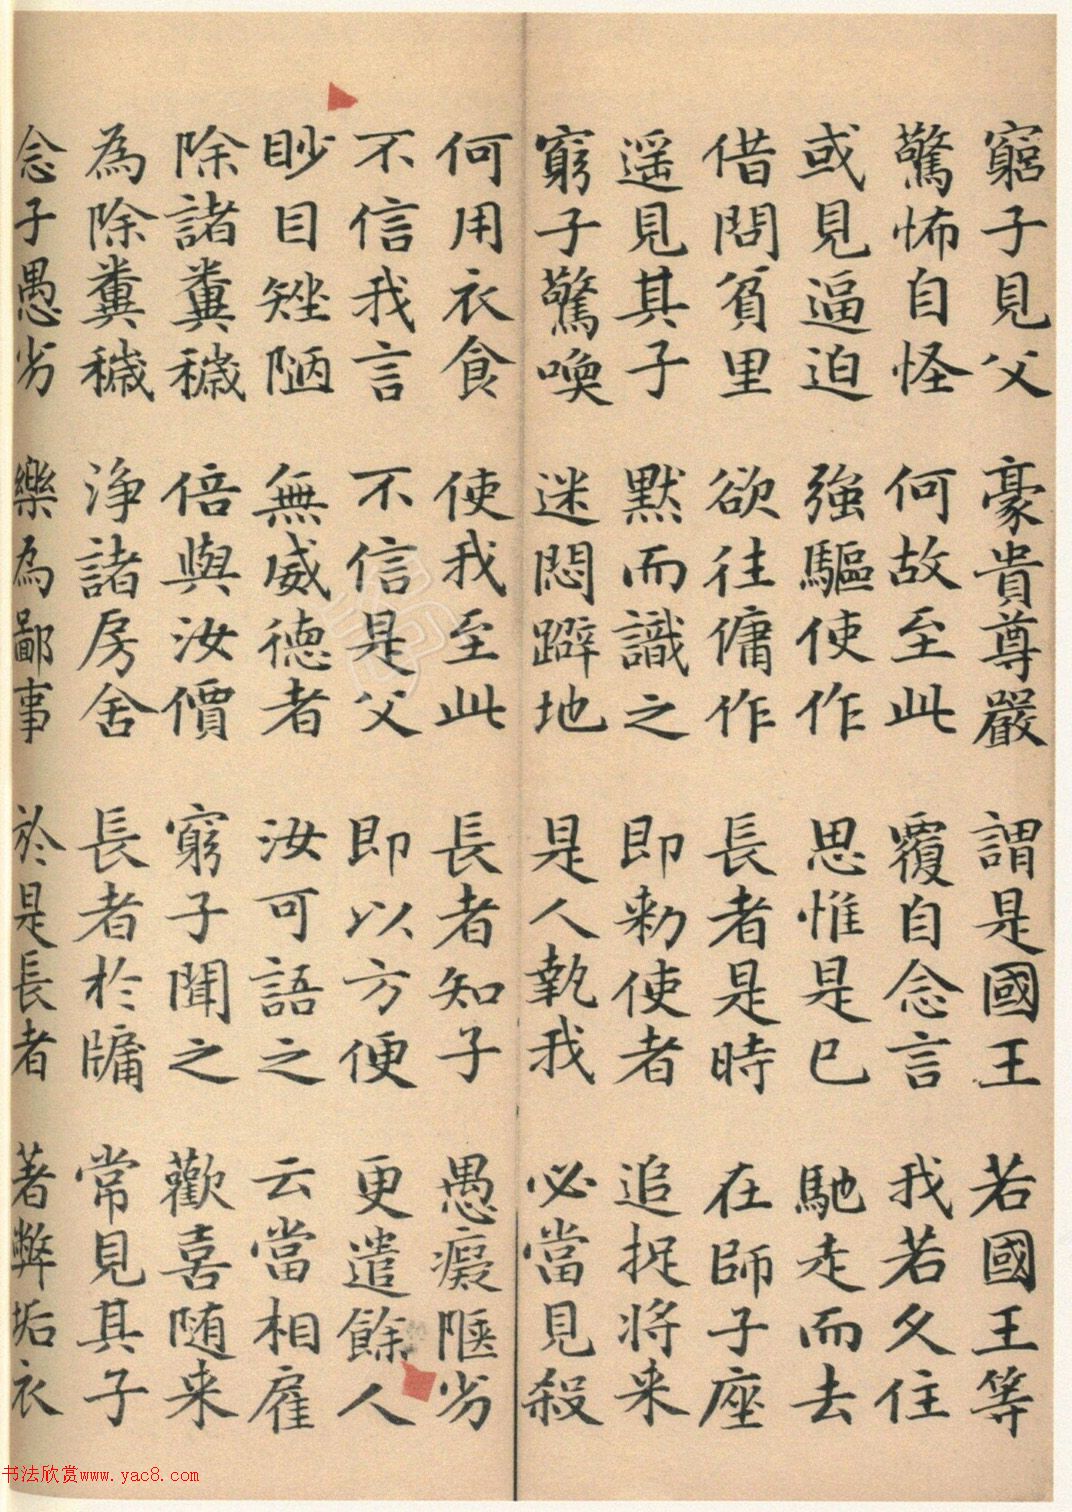 窮子見父 豪貴尊嚴 謂是國王 若國王等
驚怖自怪 何故至此 覆自念言 我若久住
或見逼迫 強驅使作 思惟是已 馳走而去
借問貧里 欲往傭作 長者是時 在師子座
遥見其子 默而識之 即勑使者 追捉将来
窮子驚喚 迷悶躃地 是人執我 必當見殺
何用衣食 使我至此 長者知子 愚癡陿劣
不信我言 不信是父 即以方便 更遣餘人
眇目矬陋 無威德者 汝可語之 云當相雇
除諸糞穢 倍與汝價 窮子聞之 歡喜随来
為除糞穢 浄諸房舍 長者於牖 常見其子
念子愚劣 樂為鄙事 於是長者 著弊垢衣
书法欣赏www.yac8.com